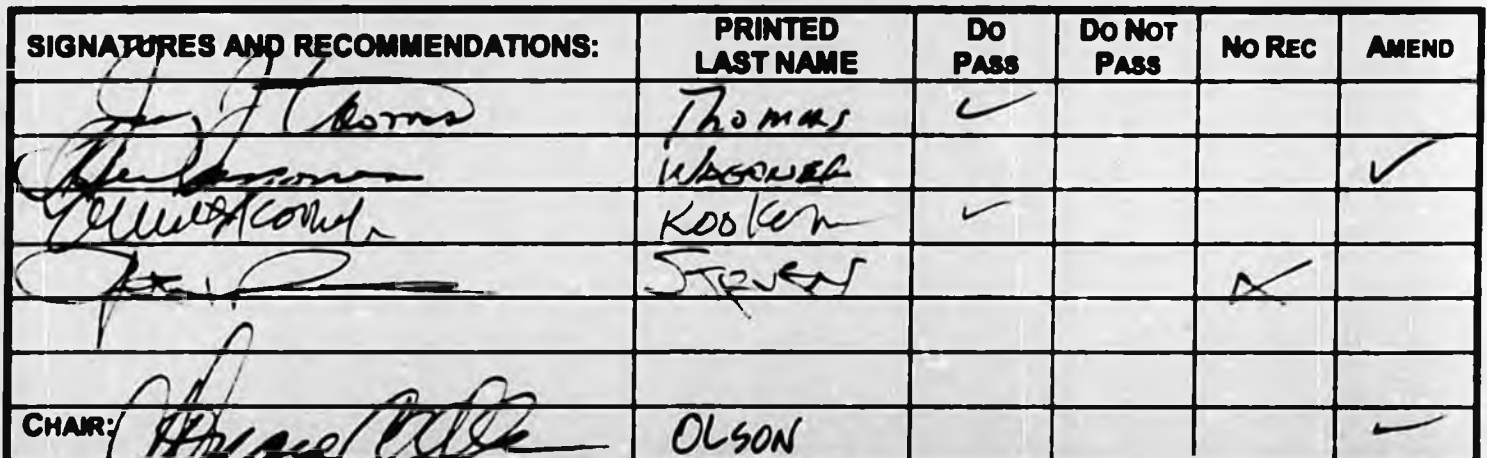 SIGNATURES AND RECOMMENDATIONS: PRINTED LAST NAME DO PASS DO NOT PASS NO REC AMEND
Thomas Thomas ✓
WAGONER ✓
KOOKEN ✓
STEVEN
CHAIR: OLSON ✓